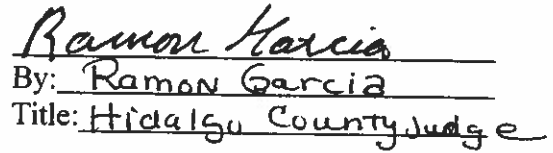 Ramon Garcia
By: Ramon Garcia
Title: Hidalgo County Judge